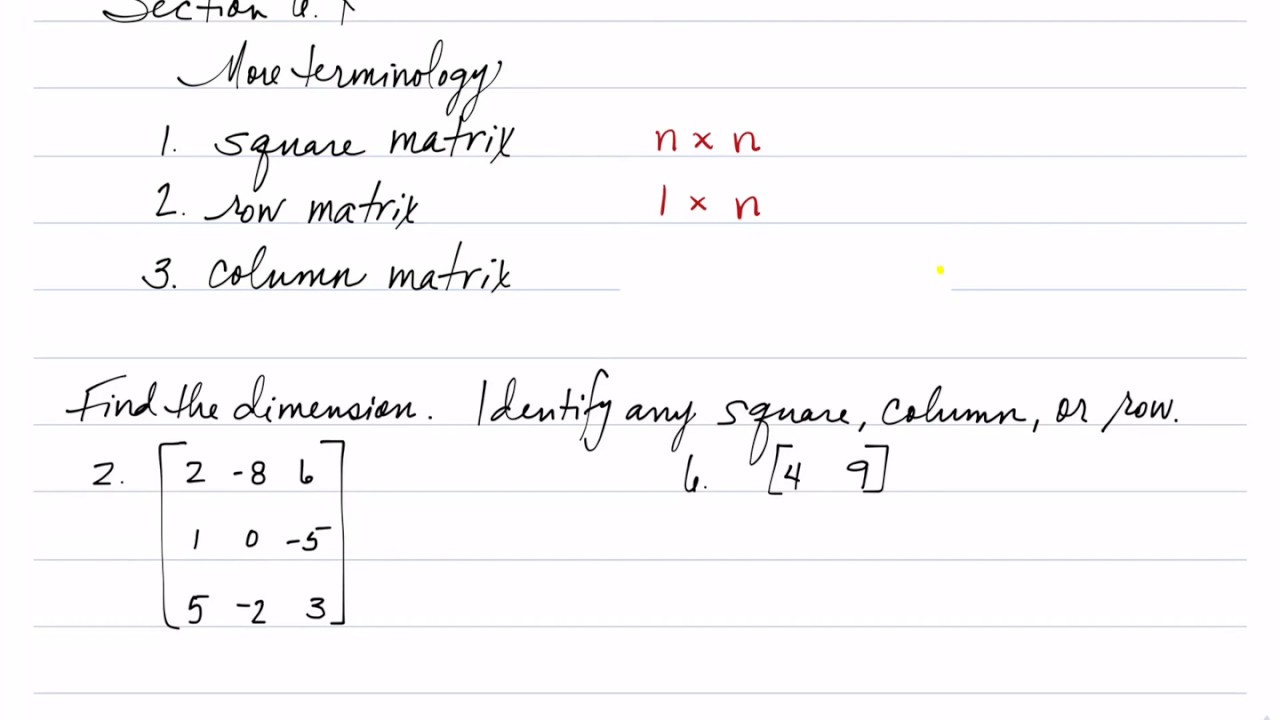 Section 6.1
More terminology
1. square matrix n × n
2. row matrix 1 × n
3. column matrix
Find the dimension. Identify any square, column, or row.
2. [2 -8 6] 6. [4 9]
1 0 -5
5 -2 3